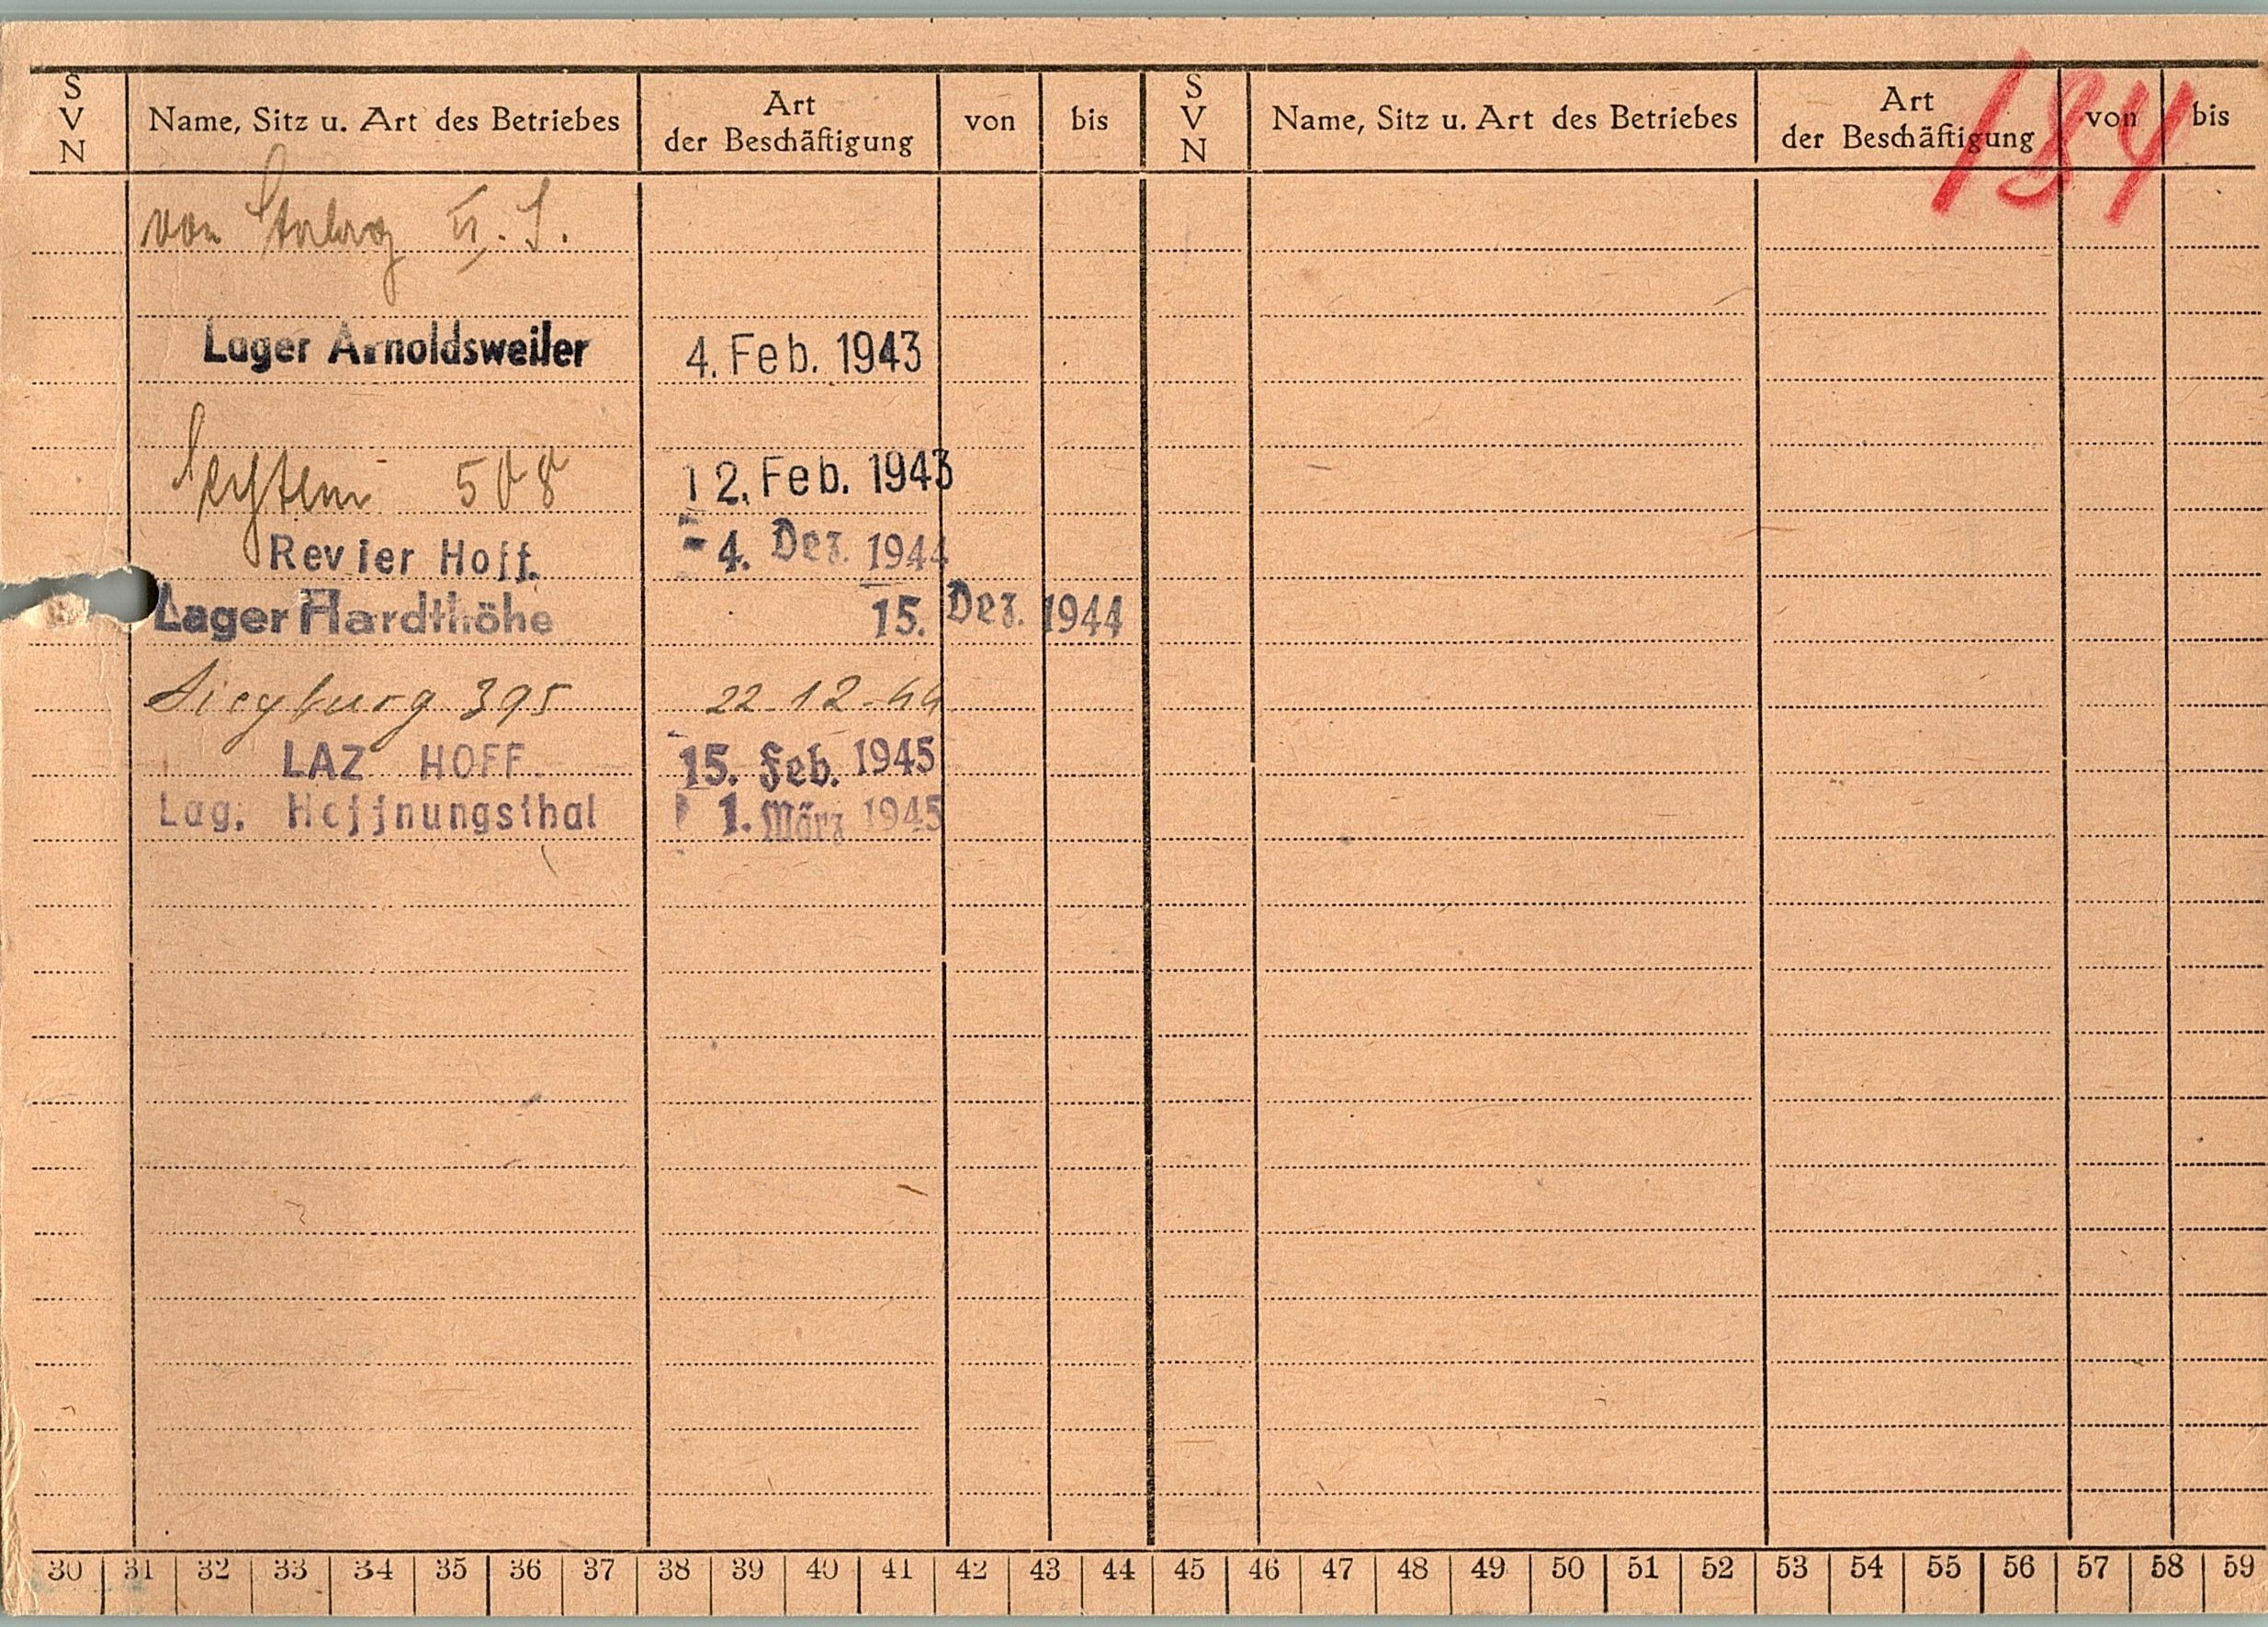 S V N Name, Sitz u. Art des Betriebes Art der Beschäftigung von bis S V N Name, Sitz u. Art des Betriebes Art der Beschäftigung von bis
184
von Stalag
Lager Arnoldsweiler 4. Feb. 1943
Sechtem 508 12. Feb. 1943
Revier Hoff. 4. Dez. 1944
Lager Hardthöhe 15. Dez. 1944
Siegburg 395 22-12-44
LAZ HOFF. 15. Feb. 1945
Lag. Hoffnungsthal 1. März 1945
30 31 32 33 34 35 36 37 38 39 40 41 42 43 44 45 46 47 48 49 50 51 52 53 54 55 56 57 58 59